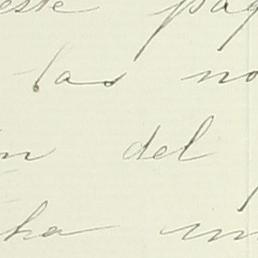 este pag
las no
n del
ha un